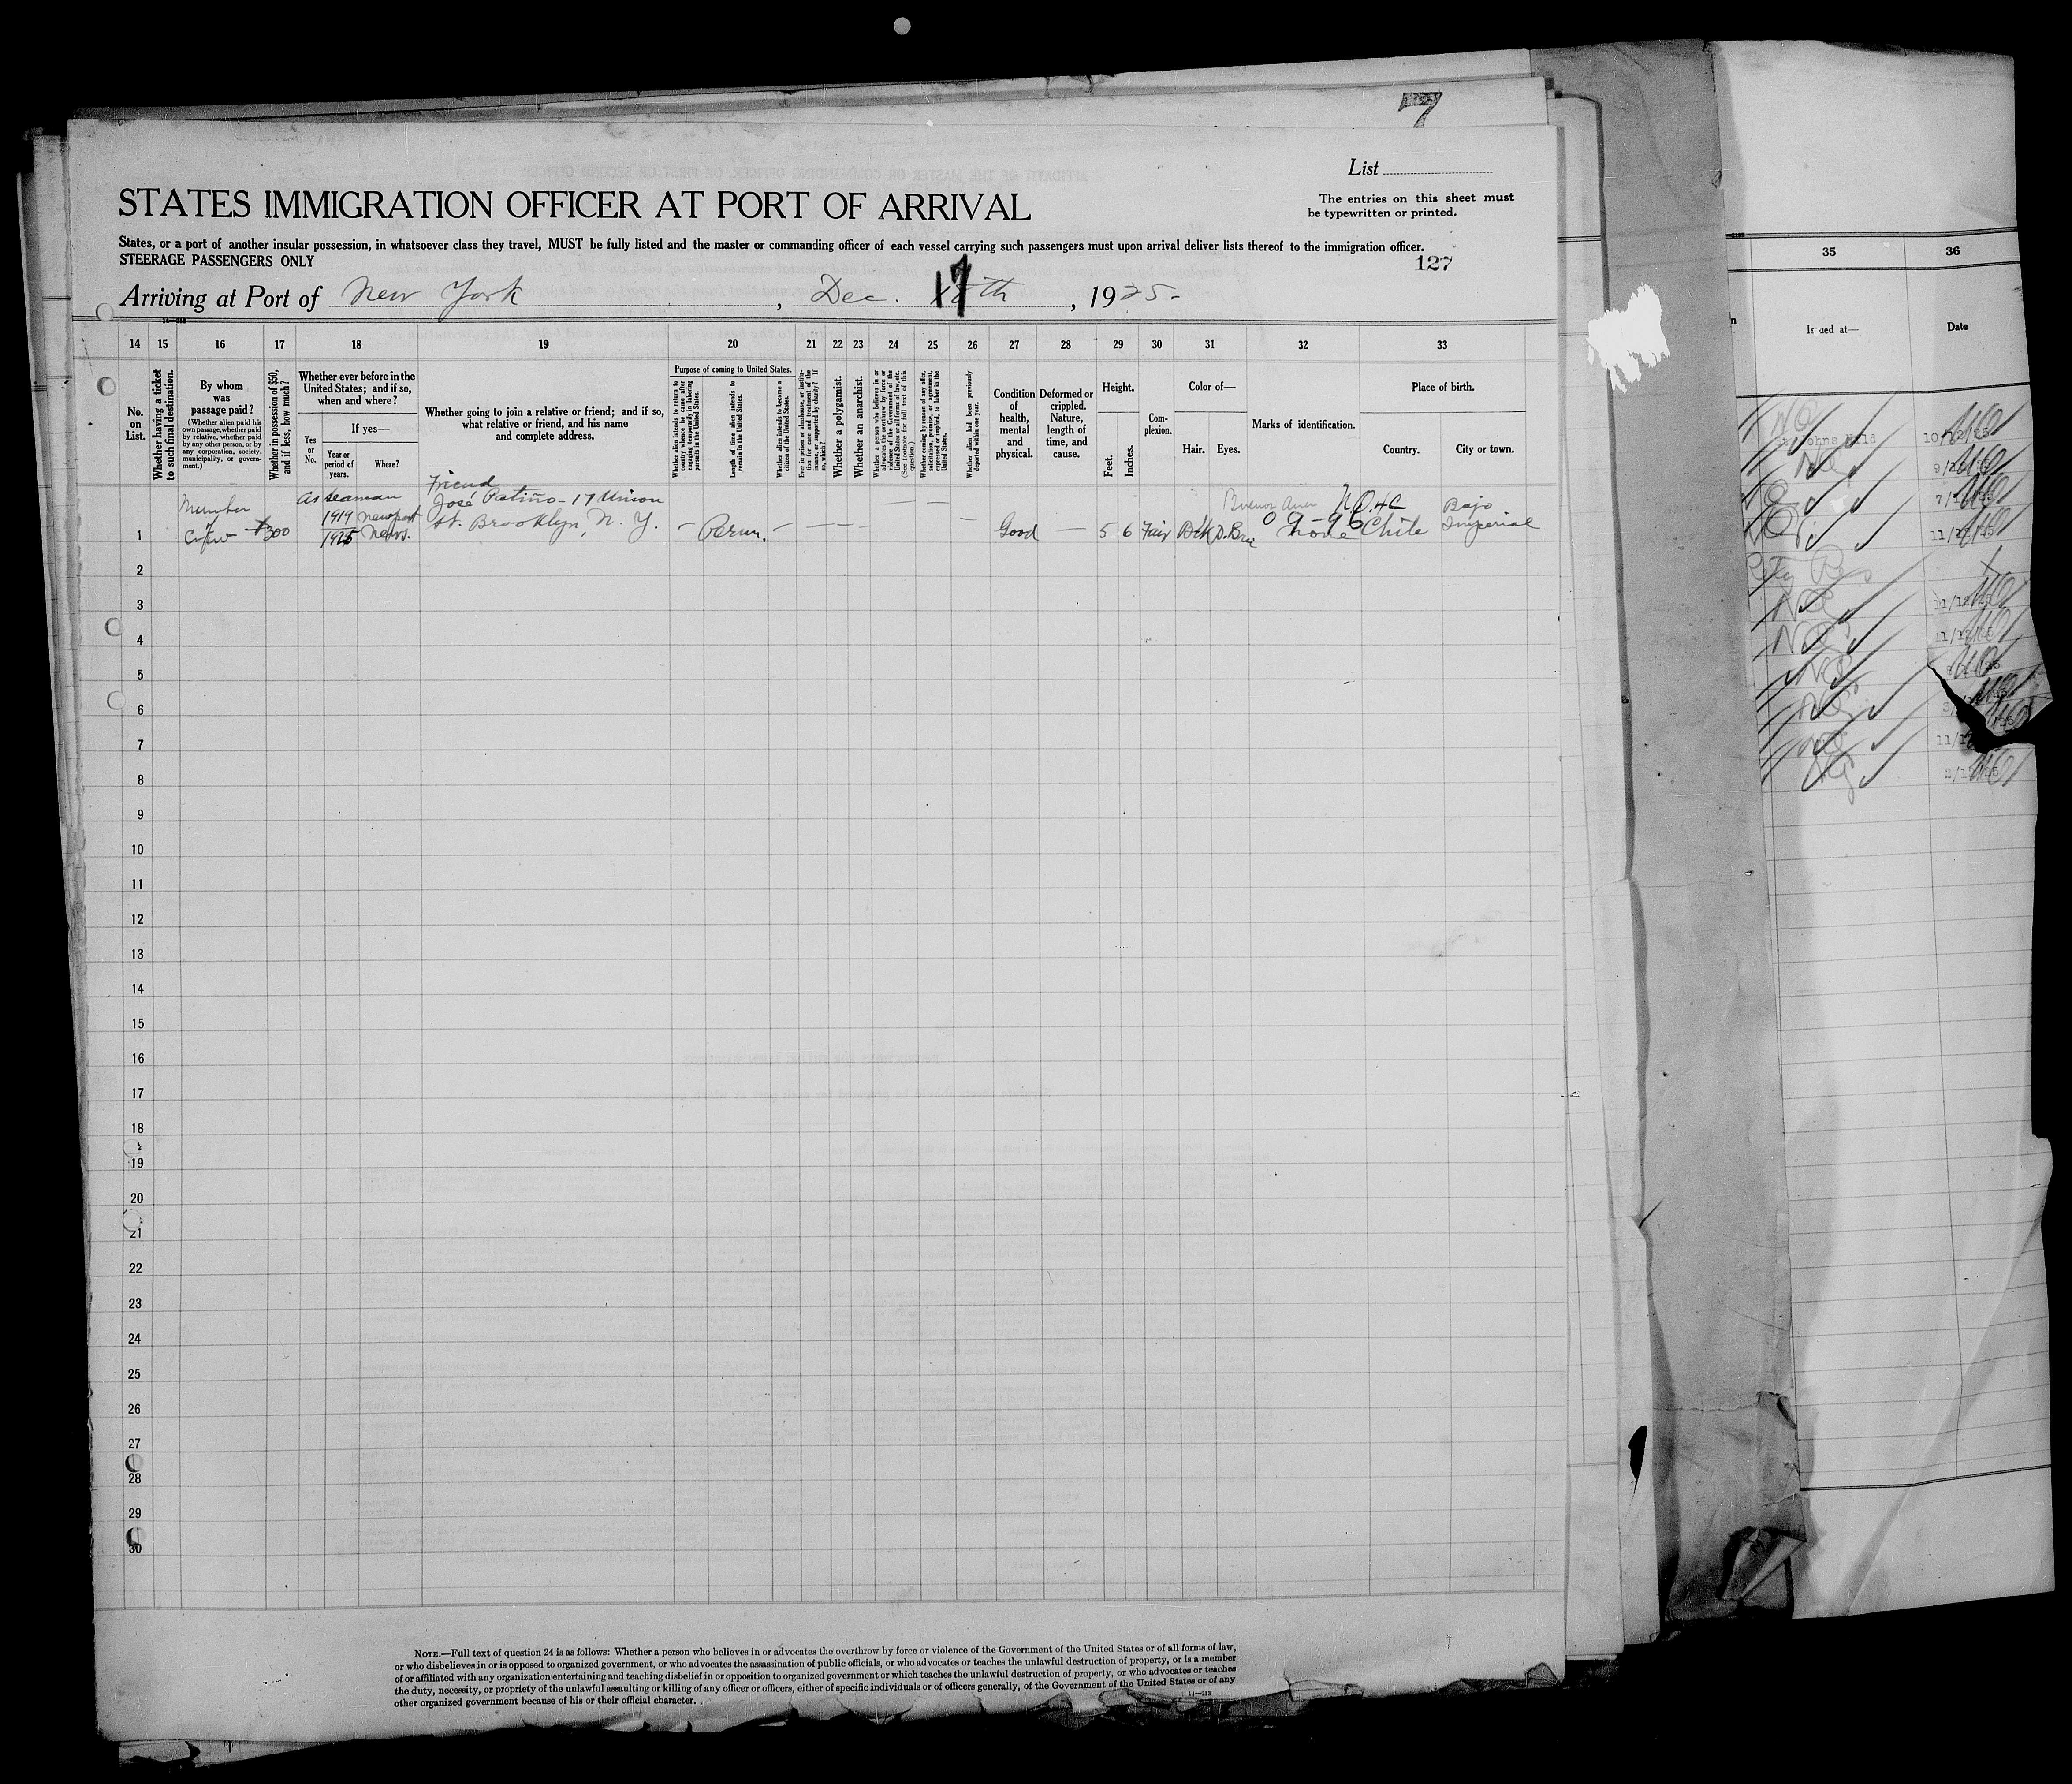 7
List
The entries on this sheet must
be typewritten or printed.
STATES IMMIGRATION OFFICER AT PORT OF ARRIVAL
States, or a port of another insular possession, in whatsoever class they travel, MUST be fully listed and the master or commanding officer of each vessel carrying such passengers must upon arrival deliver lists thereof to the immigration officer.
STEERAGE PASSENGERS ONLY
127
Arriving at Port of New York, Dec. 17th, 1925.
14 15 16 17 18 19 20 21 22 23 24 25 26 27 28 29 30 31 32 33
No. on List.
Whether having a ticket to such final destination.
By whom was passage paid?
(Whether alien paid his own passage, whether paid by relative, whether paid by any other person, or by any corporation, society, municipality, or government.)
Whether in possession of $50, and if less, how much?
Whether ever before in the United States; and if so, when and where?
Yes or No.
If yes—
Year or period of years.
Where?
Whether going to join a relative or friend; and if so, what relative or friend, and his name and complete address.
Purpose of coming to United States.
Whether alien intends to return to country whence he came after engaging temporarily in laboring pursuits in the United States.
Length of time alien intends to remain in the United States.
Whether alien intends to become a citizen of the United States.
Ever in prison or almshouse, or institution for care and treatment of the insane, or supported by charity? If so, which?
Whether a polygamist.
Whether an anarchist.
Whether a person who believes in or advocates the overthrow by force or violence of the Government of the United States or all forms of law, etc. (See footnote for full text of this question.)
Whether coming by reason of any offer, solicitation, promise, or agreement, expressed or implied, to labor in the United States.
Whether alien had been previously deported within one year.
Condition of health, mental and physical.
Deformed or crippled. Nature, length of time, and cause.
Height.
Feet. Inches.
Complexion.
Color of—
Hair. Eyes.
Marks of identification.
Place of birth.
Country. City or town.
Friend
Member As seaman José Patiño - 17 Union Buenos Aires Bajo
of 1919 Newport St. Brooklyn, N. Y.
1 Crew $300 1925 News. Perm. Good 5 6 Fair none Chile Imperial
2
3
4
5
6
7
8
9
10
11
12
13
14
15
16
17
18
19
20
21
22
23
24
25
26
27
28
29
30
NOTE.—Full text of question 24 is as follows: Whether a person who believes in or advocates the overthrow by force or violence of the Government of the United States or of all forms of law,
or who disbelieves in or is opposed to organized government, or who advocates the assassination of public officials, or who advocates or teaches the unlawful destruction of property, or is a member
of or affiliated with any organization entertaining and teaching disbelief in or opposition to organized government or which teaches the unlawful destruction of property, or who advocates or teaches
the duty, necessity, or propriety of the unlawful assaulting or killing of any officer or officers, either of specific individuals or of officers generally, of the Government of the United States or of any
other organized government because of his or their official character.
35 36
Issued at— Date